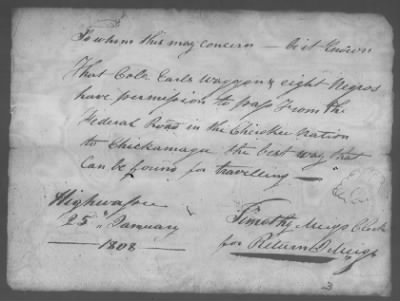 To whom this may concern — be it Known
That Colo. Earls Waggon & eight Negros
have permission to pass From the
Federal Road in the Cherokee Nation
to Chickamaga the best way that
Can be found for travelling —
Highwassee
25th January
1808
Timothy Meigs Clerk
for Return J Meigs
3